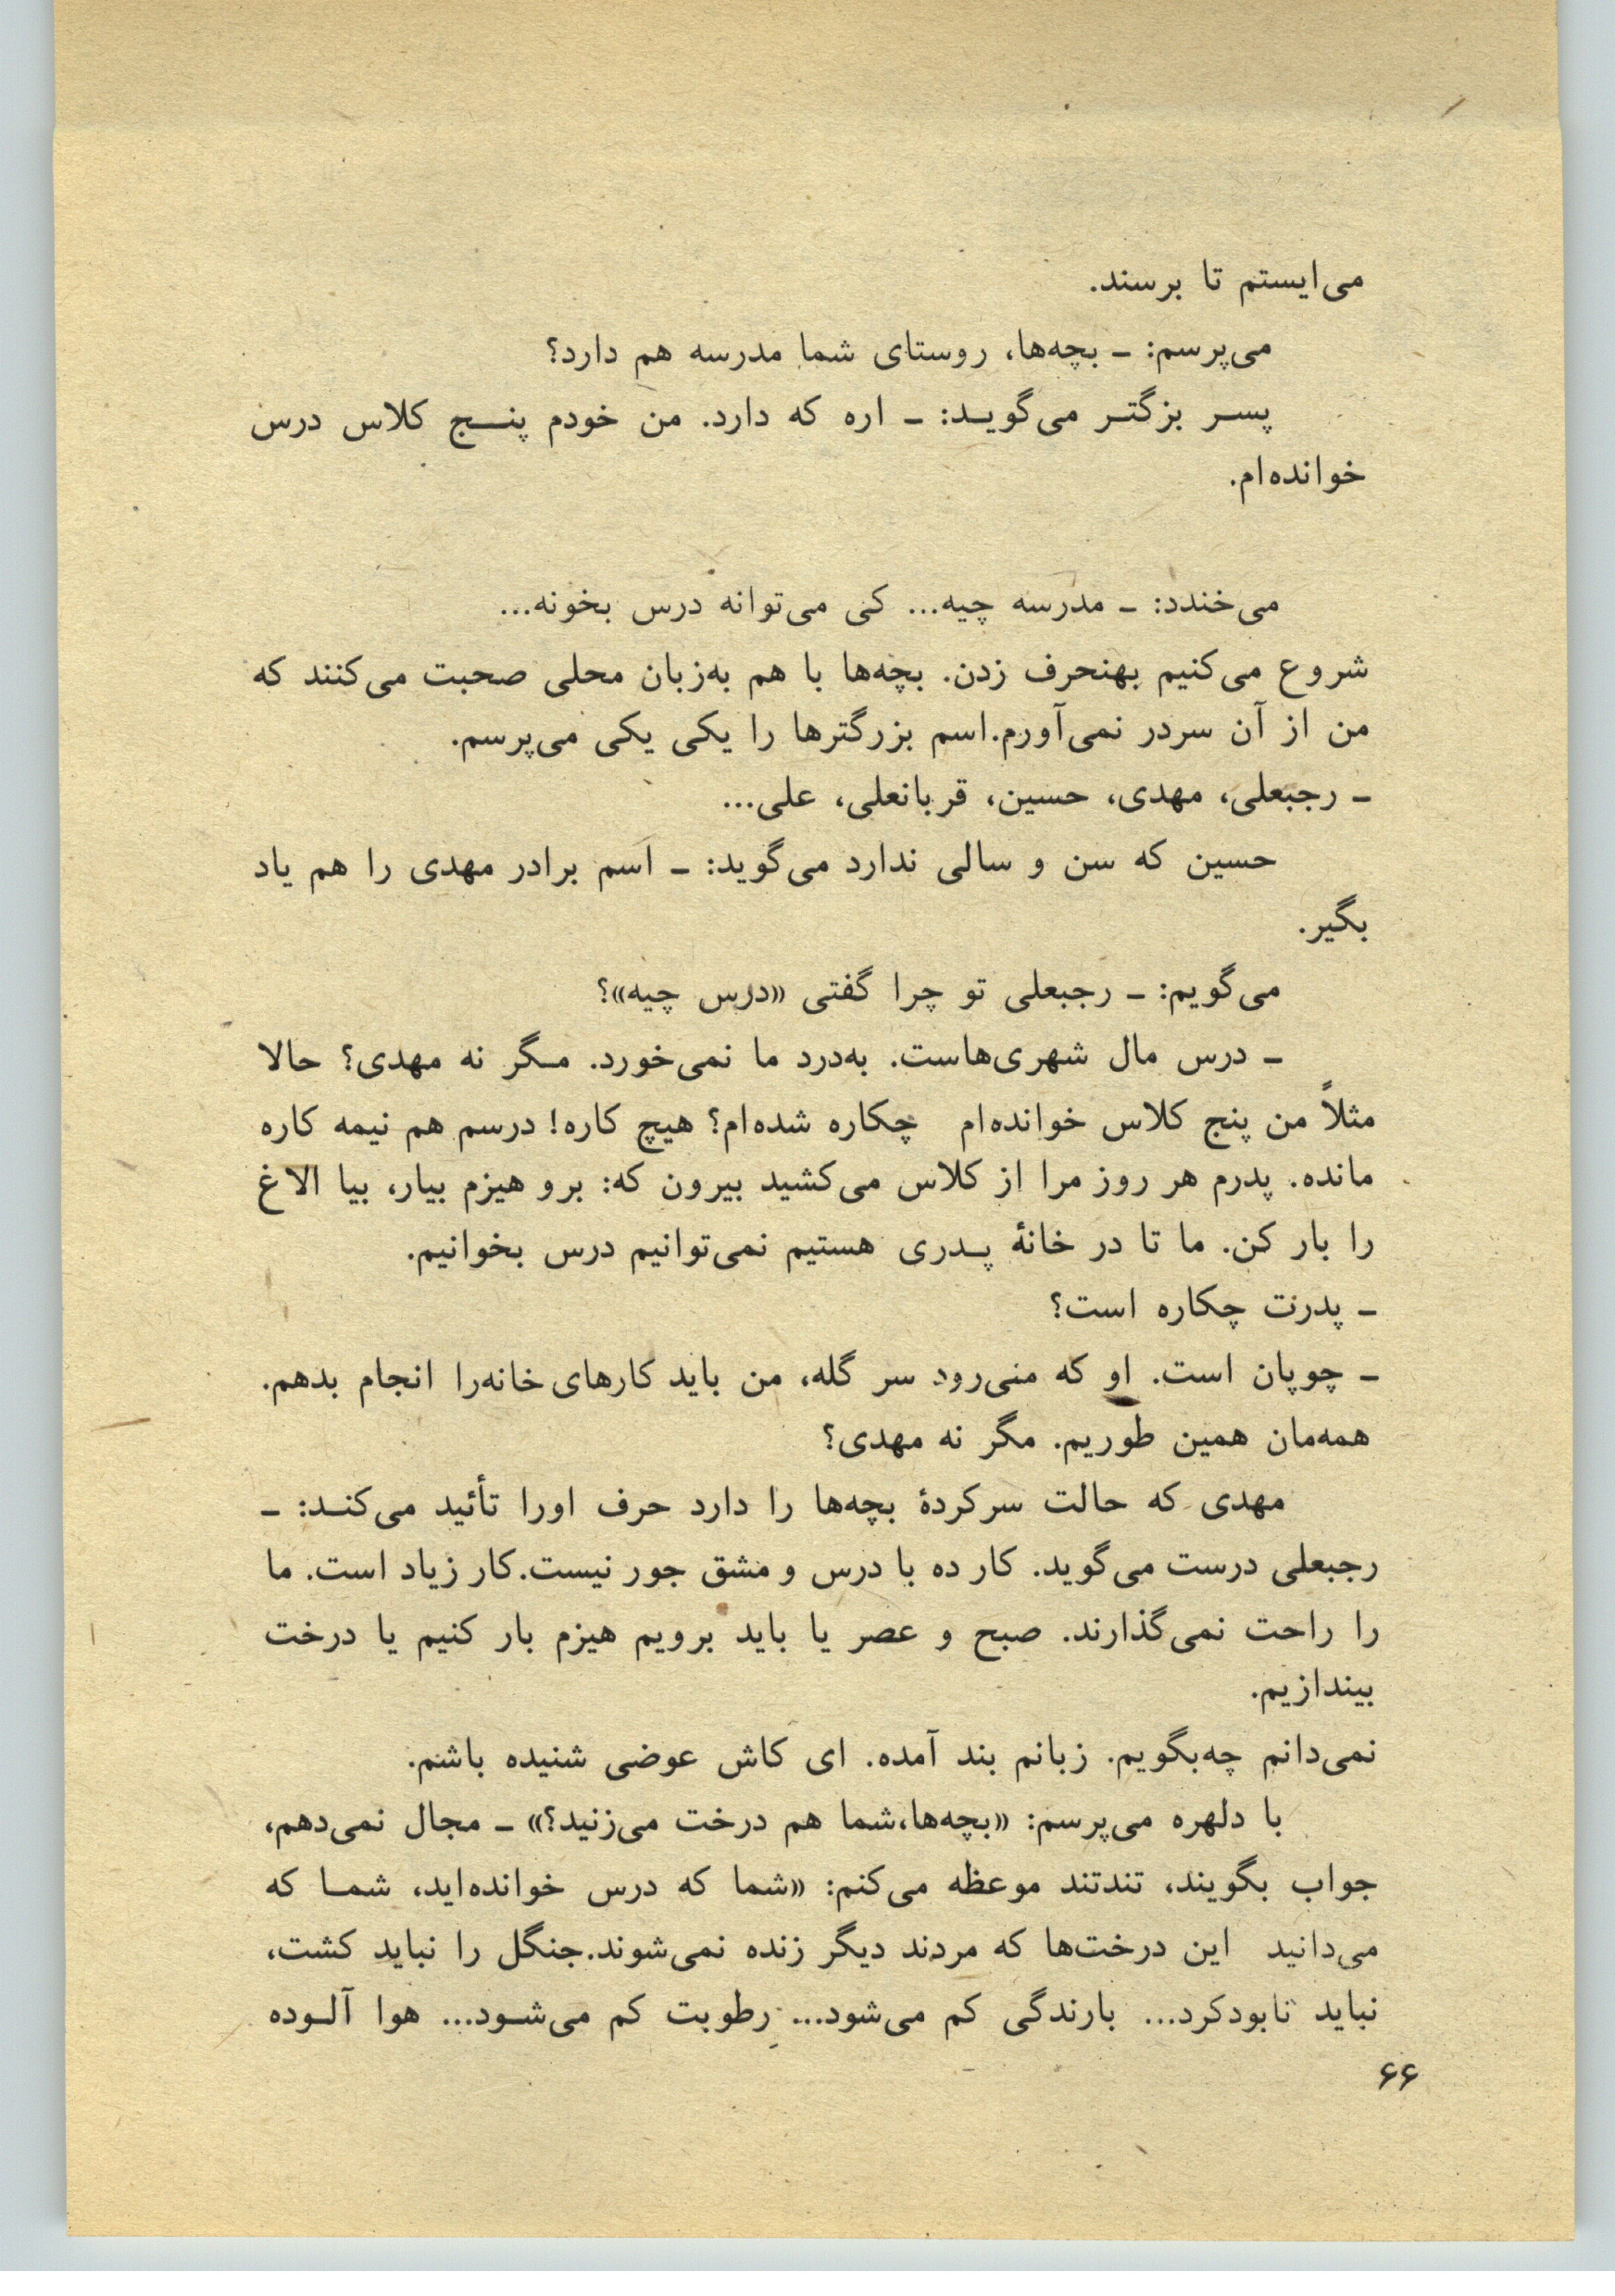 می‌ایستم تا برسند.
می‌پرسم: ـ بچه‌ها، روستای شما مدرسه هم دارد؟
پسر بزگتر می‌گوید: ـ اره که دارد. من خودم پنج کلاس درس
خوانده‌ام.
می‌خندد: ـ مدرسه چیه... کی می‌توانه درس بخونه...
شروع می‌کنیم بهنحرف زدن. بچه‌ها با هم به‌زبان محلی صحبت می‌کنند که
من از آن سردر نمی‌آورم.اسم بزرگترها را یکی یکی می‌پرسم.
ـ رجبعلی، مهدی، حسین، قربانعلی، علی...
حسین که سن و سالی ندارد می‌گوید: ـ اسم برادر مهدی را هم یاد
بگیر.
می‌گویم: ـ رجبعلی تو چرا گفتی «درس چیه»؟
ـ درس مال شهری‌هاست. به‌درد ما نمی‌خورد. مگر نه مهدی؟ حالا
مثلاً من پنج کلاس خوانده‌ام چکاره شده‌ام؟ هیچ کاره! درسم هم نیمه کاره
مانده. پدرم هر روز مرا از کلاس می‌کشید بیرون که: برو هیزم بیار، بیا الاغ
را بار کن. ما تا در خانهٔ پدری هستیم نمی‌توانیم درس بخوانیم.
ـ پدرت چکاره است؟
ـ چوپان است. او که منی‌رود سر گله، من باید کارهای خانه‌را انجام بدهم.
همه‌مان همین طوریم. مگر نه مهدی؟
مهدی که حالت سرکردهٔ بچه‌ها را دارد حرف اورا تأئید می‌کند: ـ
رجبعلی درست می‌گوید. کار ده با درس و مشق جور نیست.کار زیاد است. ما
را راحت نمی‌گذارند. صبح و عصر یا باید برویم هیزم بار کنیم یا درخت
بیندازیم.
نمی‌دانم چه‌بگویم. زبانم بند آمده. ای کاش عوضی شنیده باشم.
با دلهره می‌پرسم: «بچه‌ها،شما هم درخت می‌زنید؟» ـ مجال نمی‌دهم،
جواب بگویند، تندتند موعظه می‌کنم: «شما که درس خوانده‌اید، شما که
می‌دانید این درخت‌ها که مردند دیگر زنده نمی‌شوند.جنگل را نباید کشت،
نباید نابودکرد... بارندگی کم می‌شود... رطوبت کم می‌شود... هوا آلوده
۶۶